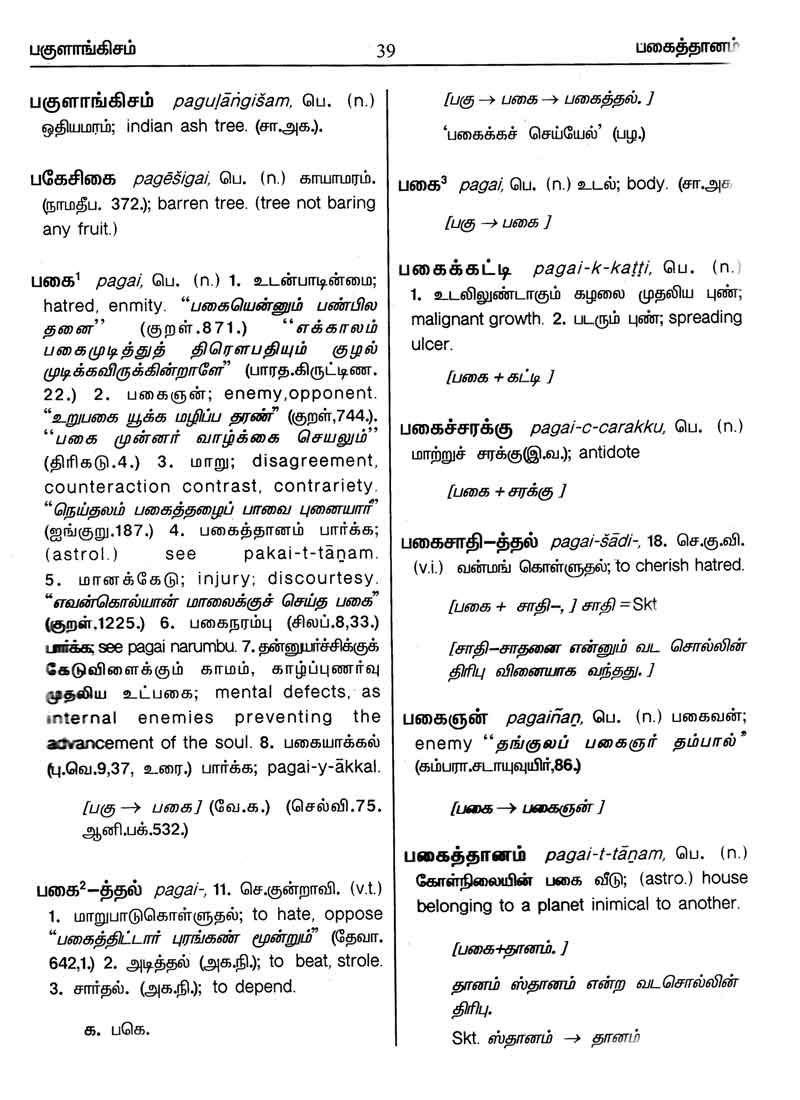 பகுளாங்கிசம்
39
பகைத்தானம்
பகுளாங்கிசம் paguḷāṅgišam, பெ. (n.)
ஒதியமரம்; indian ash tree. (சா.அக.).
பகேசிகை pagēšigai, பெ. (n.) காயாமரம்.
(நாமதீப. 372.); barren tree. (tree not baring
any fruit.)
பகை¹ pagai, பெ. (n.) 1. உடன்பாடின்மை;
hatred, enmity. “பகையென்னும் பண்பில
தனை’’ (குறள்.871.) ‘‘எக்காலம்
பகைமுடித்துத் திரௌபதியும் குழல்
முடிக்கவிருக்கின்றாளே” (பாரத.கிருட்டிண.
22.) 2. பகைஞன்; enemy,opponent.
“உறுபகை யூக்க மழிப்ப தரண்” (குறள்,744.).
‘‘பகை முன்னர் வாழ்க்கை செயலும்’’
(திரிகடு.4.) 3. மாறு; disagreement,
counteraction contrast, contrariety.
“நெய்தலம் பகைத்தழைப் பாவை புனையார்”
(ஐங்குறு.187.) 4. பகைத்தானம் பார்க்க;
(astrol.) see pakai-t-tāṉam.
5. மானக்கேடு; injury; discourtesy.
“எவன்கொல்யான் மாலைக்குச் செய்த பகை”
(குறள்.1225.) 6. பகைநரம்பு (சிலப்.8,33.)
பார்க்க; see pagai narumbu. 7. தன்னுயர்ச்சிக்குக்
கேடுவிளைக்கும் காமம், காழ்ப்புணர்வு
முதலிய உட்பகை; mental defects, as
internal enemies preventing the
advancement of the soul. 8. பகையாக்கல்
(பு.வெ.9,37, உரை.) பார்க்க; pagai-y-ākkal.
[பகு → பகை] (வே.க.) (செல்வி.75.
ஆனி.பக்.532.)
பகை²–த்தல் pagai-, 11. செ.குன்றாவி. (v.t.)
1. மாறுபாடுகொள்ளுதல்; to hate, oppose
“பகைத்திட்டார் புரங்கண் மூன்றும்” (தேவா.
642,1.) 2. அடித்தல் (அக.நி.); to beat, strole.
3. சார்தல். (அக.நி.); to depend.
க. பகெ.
[பகு → பகை → பகைத்தல். ]
‘பகைக்கச் செய்யேல்’ (பழ.)
பகை³ pagai, பெ. (n.) உடல்; body. (சா.அக
[பகு → பகை ]
பகைக்கட்டி pagai-k-kaṭṭi, பெ. (n.)
1. உடலிலுண்டாகும் கழலை முதலிய புண்;
malignant growth. 2. படரும் புண்; spreading
ulcer.
[பகை + கட்டி ]
பகைச்சரக்கு pagai-c-carakku, பெ. (n.)
மாற்றுச் சரக்கு(இ.வ.); antidote
[பகை + சரக்கு ]
பகைசாதி–த்தல் pagai-šādi-, 18. செ.கு.வி.
(v.i.) வன்மங் கொள்ளுதல்; to cherish hatred.
[பகை + சாதி–, ] சாதி = Skt
[சாதி–சாதனை என்னும் வட சொல்லின்
திரிபு வினையாக வந்தது. ]
பகைஞன் pagaiñaṉ, பெ. (n.) பகைவன்;
enemy ‘‘தங்குலப் பகைஞர் தம்பால்”
(கம்பரா.சடாயுவுயிர்,86.)
[பகை → பகைஞன் ]
பகைத்தானம் pagai-t-tāṉam, பெ. (n.)
கோள்நிலையின் பகை வீடு; (astro.) house
belonging to a planet inimical to another.
[பகை+தானம். ]
தானம் ஸ்தானம் என்ற வடசொல்லின்
திரிபு.
Skt. ஸ்தானம் → தானம்